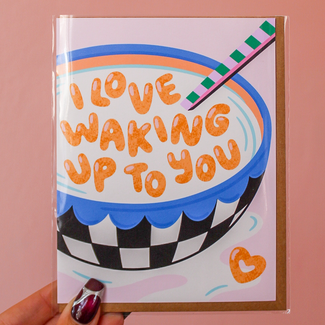 I LOVE
WAKING
UP TO YOU